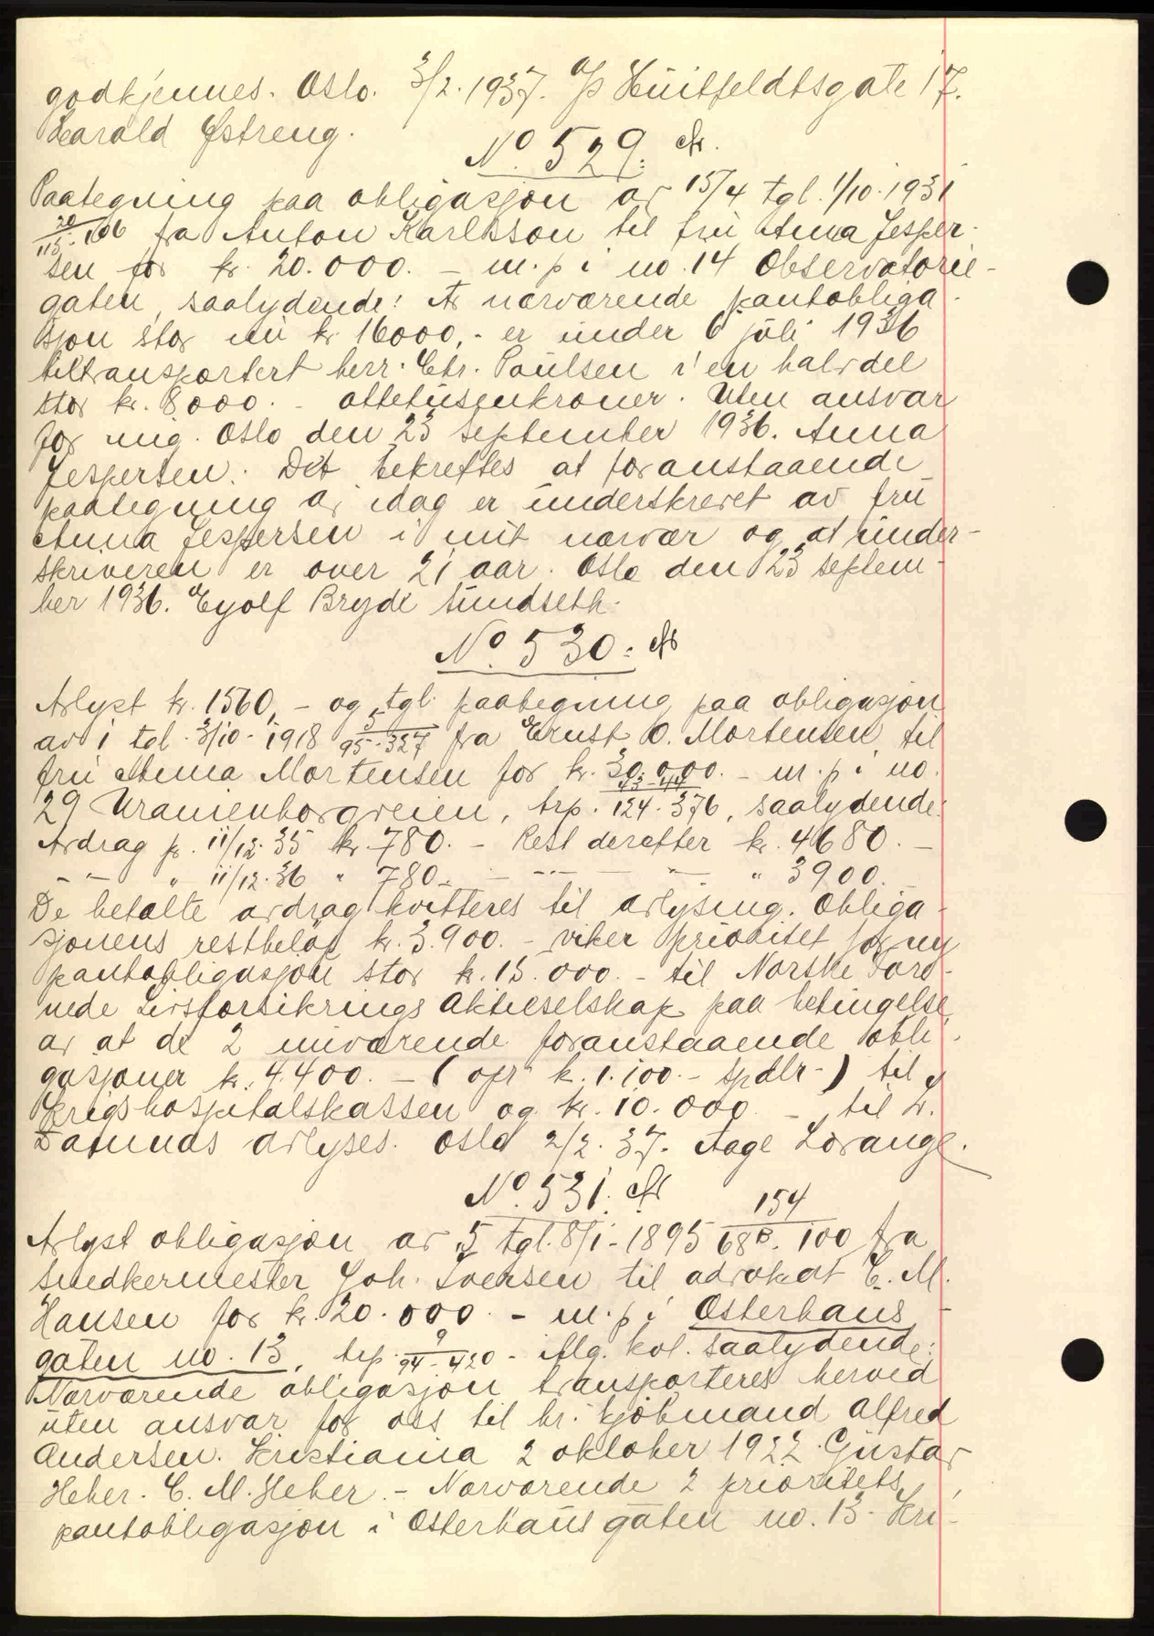 godkjennes. Oslo. 3/2.1937. A/S Huitfeldtsgate 17.
Harald Østreng.
No. 529:
Paategning paa obligasjon av 15/4 tgl. 1/10.1931
20/115-106 fra Anton Karlsson til fru Anna Jesper-
sen for kr. 20.000.- m.p i no. 14 Observatorie-
gaten, saalydende: At nærværende pantobliga-
sjon stor nu kr 16000,- er under 6 juli 1936
tiltransportert herr. Chr. Paulsen i en halvdel
stor kr. 8000.- ottetusenkroner. Uten ansvar
for mig. Oslo den 23 september 1936. Anna
Jespersen. Det bekreftes at foranstaaende
paategning av idag er underskrevet av fru
Anna Jespersen i mit nærvær og at under-
skriveren er over 21 aar. Oslo den 23 septem-
ber 1936. Eyolf Bryde Sundseth.
No. 530:
Avlyst kr. 1560,- og tgl. paategning paa obligasjon
av 1 tgl. 3/10-1918 5/95-327 fra Ernst O. Mortensen til
fru Anna Mortensen for kr. 30.000.- m.p i no.
29 Uranienborgveien, trp. 43-44/124.376, saalydende:
Avdrag pr. 11/12.35 kr. 780.- Rest deretter kr. 4680.-
- - " 11/12.36 " 780.- - - - " 3900.
De betalte avdrag kvitteres til avlysing. Obliga-
sjonens restbeløp kr. 3.900.- viker prioritet for ny
pantobligasjon stor kr. 15.000.- til Norske Fore-
nede Livsforsikrings Aktieselskap paa betingelse
av at de 2 nuværende foranstaaende obli-
gasjoner kr. 4.400.- (opr k. 1.100.- spdlr-) til
Krigshospitalskassen og kr. 10.000.- til L.
avlyses. Oslo 2/2.37. Aage Lorange.
No. 531.
Avlyst obligasjon av 5 tgl. 8/1-1895 154/68B.100 fra
snedkermester Joh. Iversen til advokat C. M.
Hansen for kr. 20.000.- m.p i Osterhaus-
gaten no. 13, trp. 9/94-420- iflg. kvl. saalydende:
Nærværende obligasjon transporteres herved
uten ansvar for oss til hr. kjøbmand Alfred
Andersen. Kristiania 2 oktober 1922. Gustav
Heber. C. M. Heber.- Nærværende 2 prioritets
pantobligasjon i Osterhaus gaten no. 13. Kri-